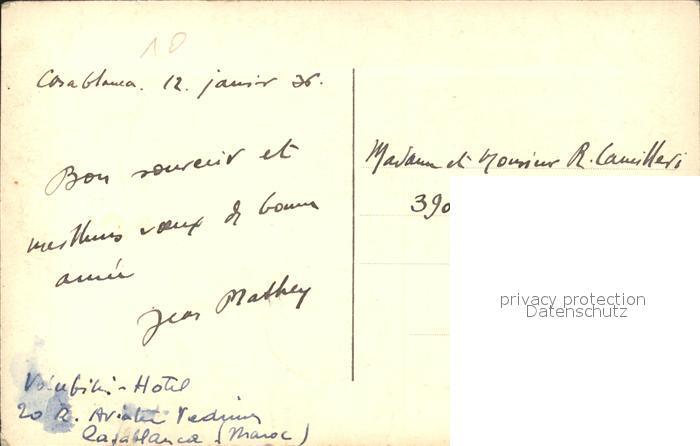 10
Casablanca. 12. janvier 36.
Bon souvenir et
meilleurs vœux de bonne
année
Jean Mathey
Hotel
20 R. Aviateur Vedrines
Casablanca (Maroc)
Madame et Monsieur R. Camilleri
390
privacy protection
Datenschutz